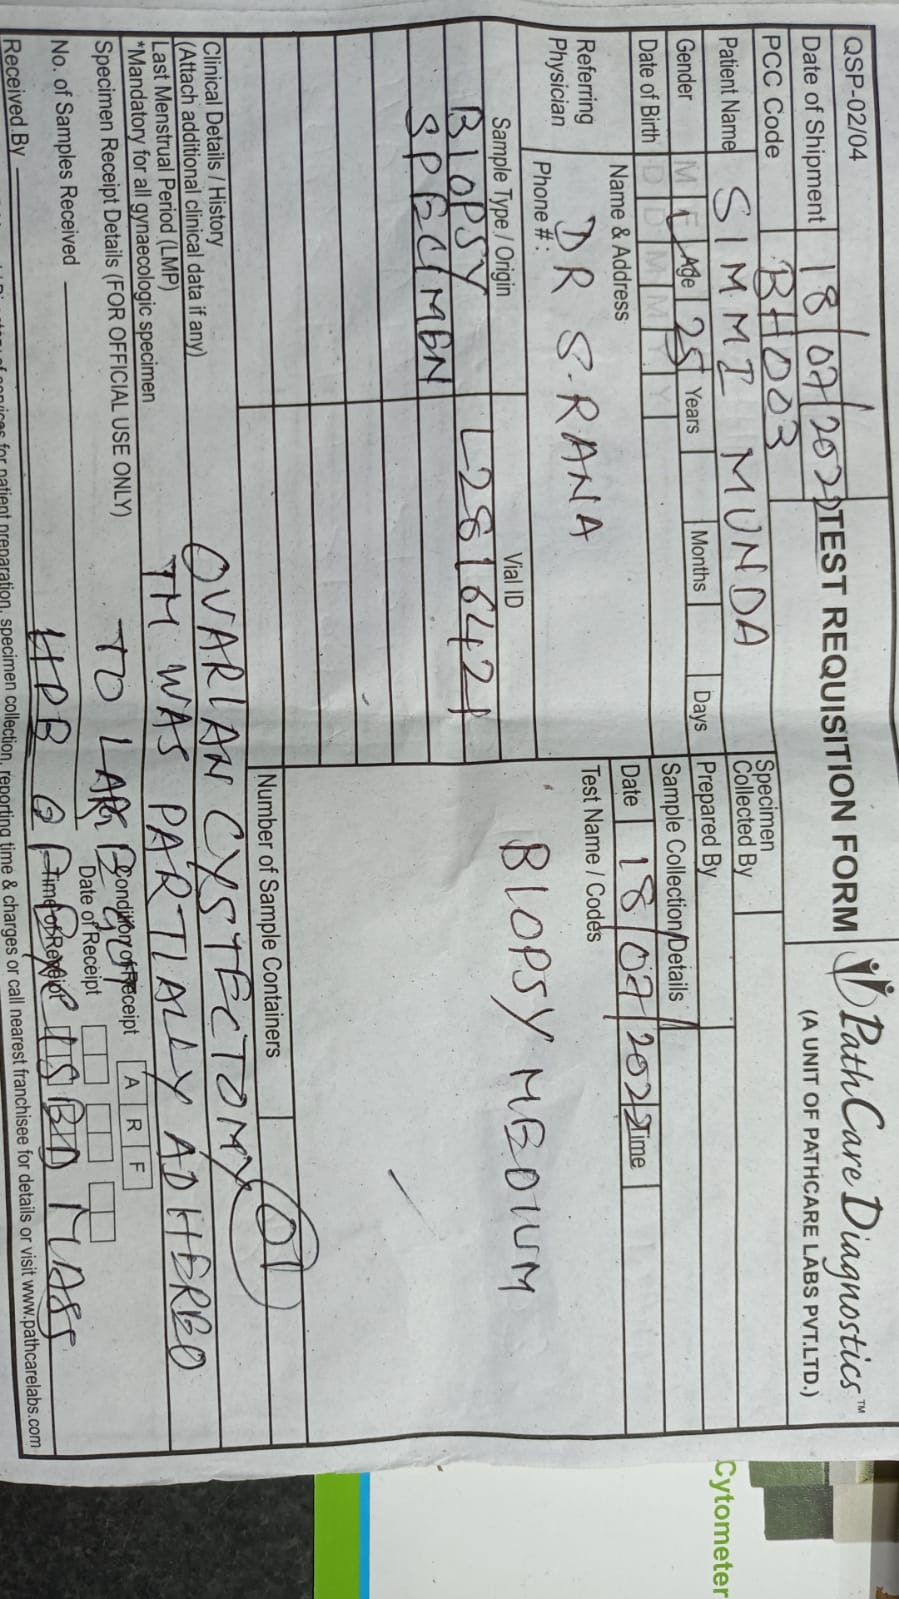 QSP-02/04
TEST REQUISITION FORM
PathCare Diagnostics™
(A UNIT OF PATHCARE LABS PVT.LTD.)
Date of Shipment 18/07/2022
PCC Code BH003
Specimen Collected By
Patient Name SIMMI MUNDA
Prepared By
Gender M F Age 25 Years Months Days
Sample Collection Details
Date of Birth D D M M Y Y
Date 18/07/2022 Time
Referring Physician
Name & Address
DR S. RANA
Phone #:
Test Name / Codes
BIOPSY MEDIUM
Sample Type / Origin Vial ID
BIOPSY L2816421
SPECIMEN
Number of Sample Containers 01
Clinical Details / History
(Attach additional clinical data if any)
OVARIAN CYSTECTOMY
Last Menstrual Period (LMP)
*Mandatory for all gynaecologic specimen
IM WAS PARTIALLY ADHERED
Specimen Receipt Details (FOR OFFICIAL USE ONLY)
TO
Condition of Receipt A R F
No. of Samples Received
Date of Receipt
Time of Receipt
Received By
services for patient preparation, specimen collection, reporting time & charges or call nearest franchisee for details or visit www.pathcarelabs.com
Cytometer